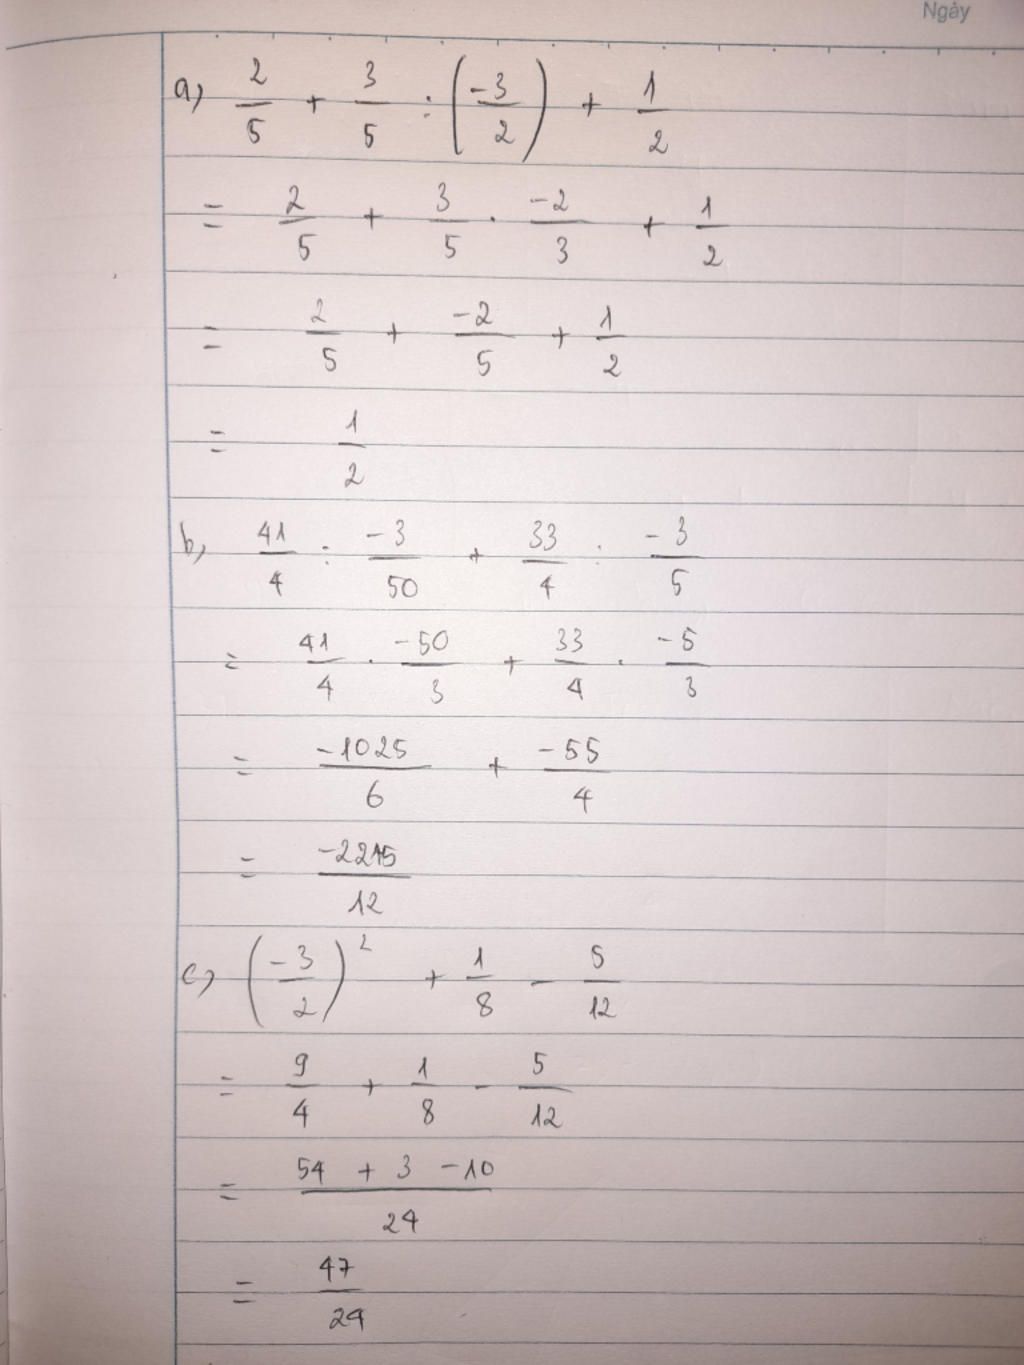 Ngày
a) 2/5 + 3/5 : (-3/2) + 1/2
= 2/5 + 3/5 . -2/3 + 1/2
= 2/5 + -2/5 + 1/2
= 1/2
b) 41/4 : -3/50 + 33/4 : -3/5
= 41/4 . -50/3 + 33/4 . -5/3
= -1025/6 + -55/4
= -2215/12
c) (-3/2)² + 1/8 - 5/12
= 9/4 + 1/8 - 5/12
= 54 + 3 - 10/24
= 47/24